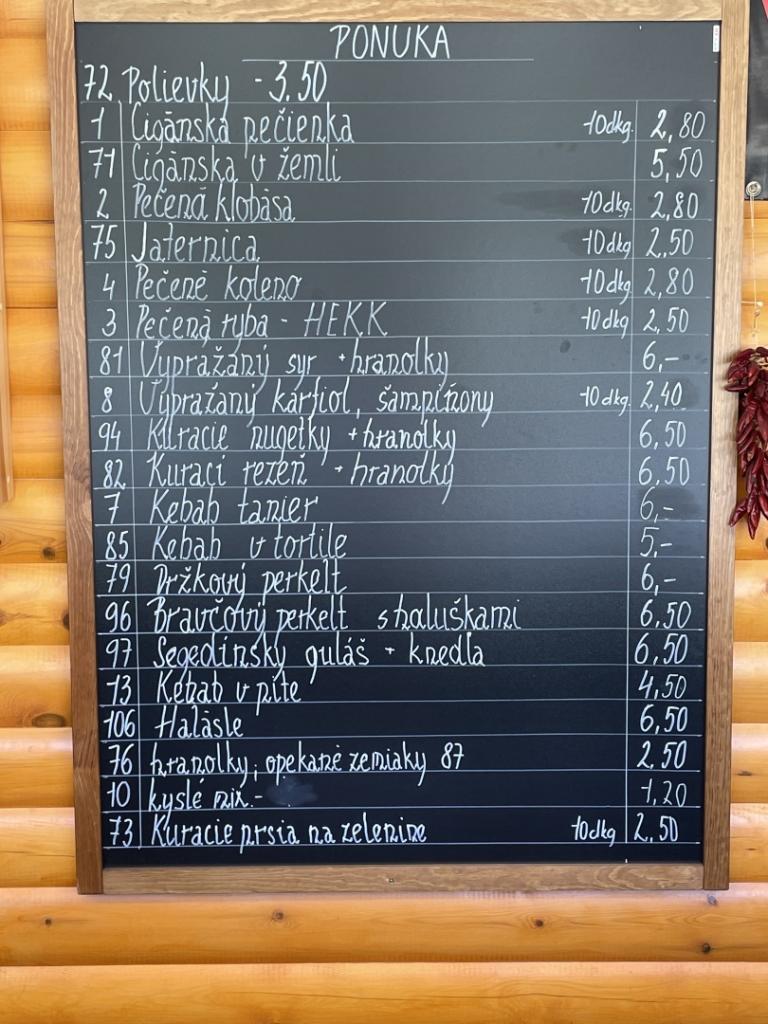 PONUKA
72 Polievky - 3.50
1 Cigánska pečienka 10dkg. 2,80
71 Cigánska v žemli 5,50
2 Pečená klobása 10dkg. 2,80
75 Jaternica 10dkg 2,50
4 Pečené koleno 10dkg 2,80
3 Pečená ryba - HEKK 10dkg 2,50
81 Vyprážaný syr +hranolky 6,-
8 Vyprážaný karfiol, šampiňony 10dkg. 2,40
94 Kuracie nugetky +hranolky 6,50
82 Kurací rezeň +hranolky 6,50
7 Kebab tanier 6,-
85 Kebab v tortile 5,-
79 Držkový perkelt 6,-
96 Bravčový perkelt s haluškami 6,50
97 Segedínsky guláš + knedla 6,50
73 Kebab v pite 4,50
106 Halásle 6,50
76 hranolky, opekané zemiaky 87 2,50
10 kyslé mix.- 1,20
73 Kuracie prsia na zelenine 10dkg 2,50